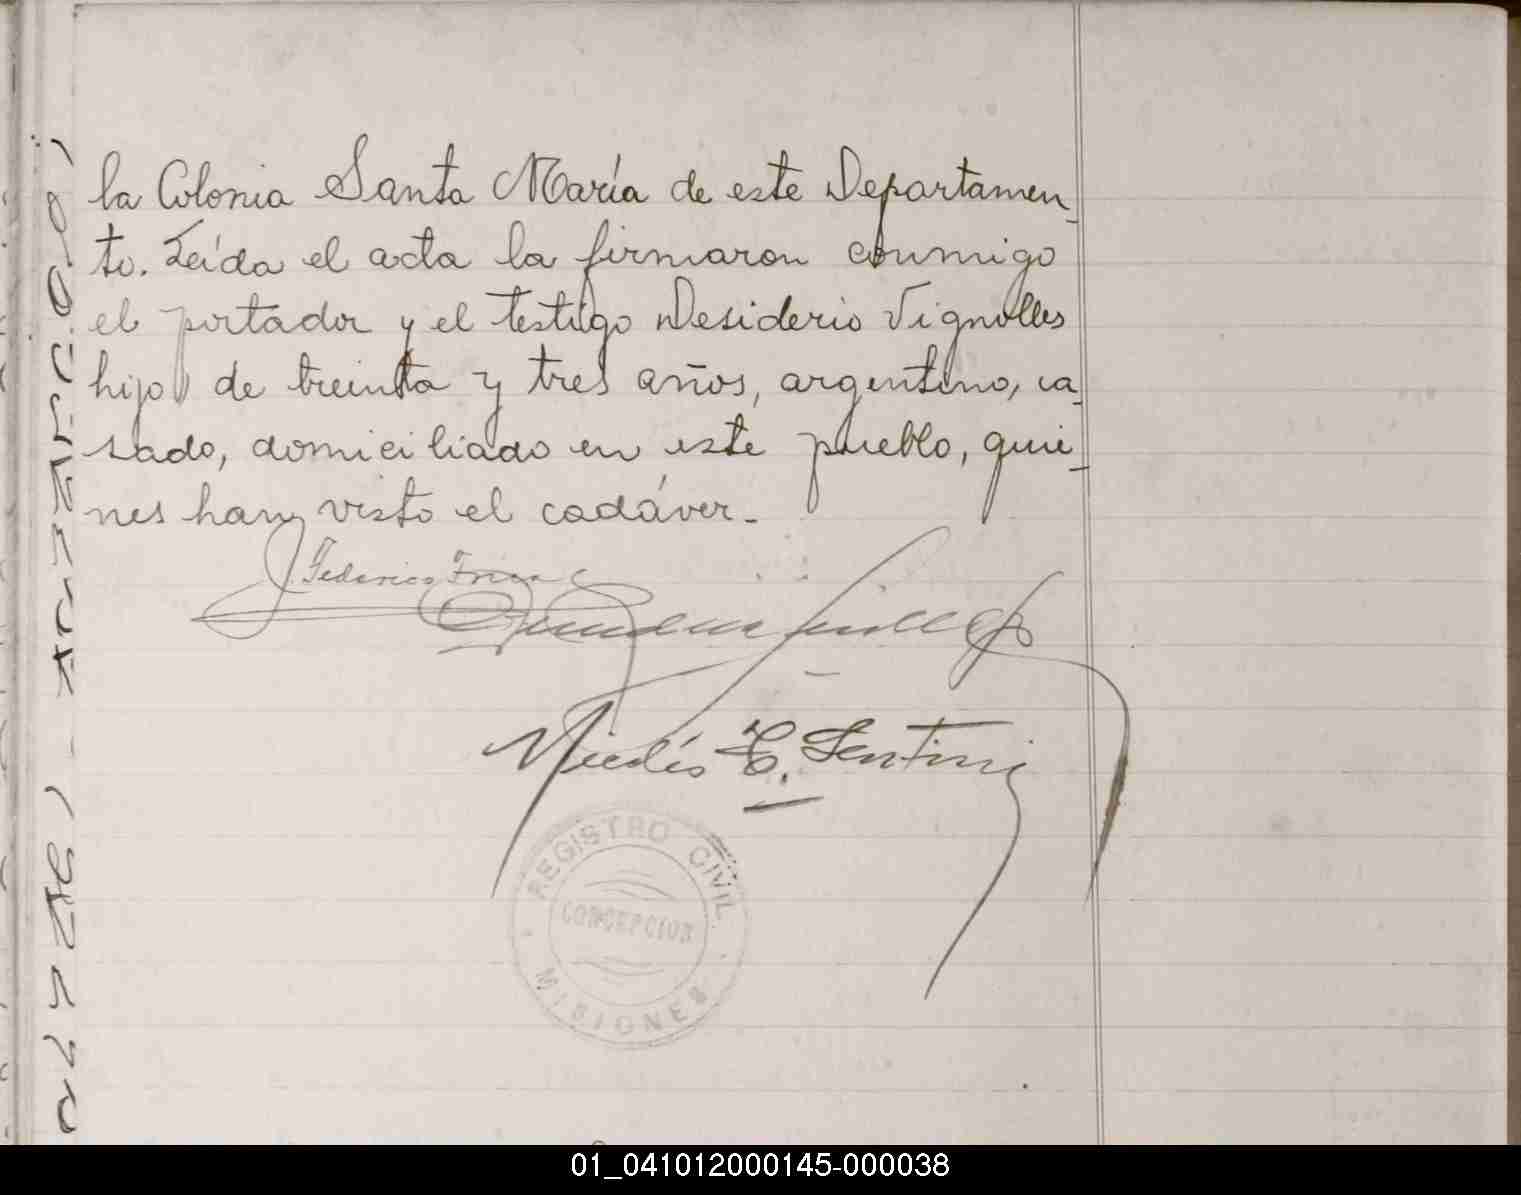 la Colonia Santa María de este Departamen_
to. Leída el acta la firmaron conmigo
el portador y el testigo Desiderio Vignolles
hijo de treinta y tres años, argentino, ca_
sado, domiciliado en este pueblo, quie_
nes han visto el cadáver.-
Federico
Nicolás E. Sentini
REGISTRO CIVIL
CONCEPCION
MISIONES
01_041012000145-000038